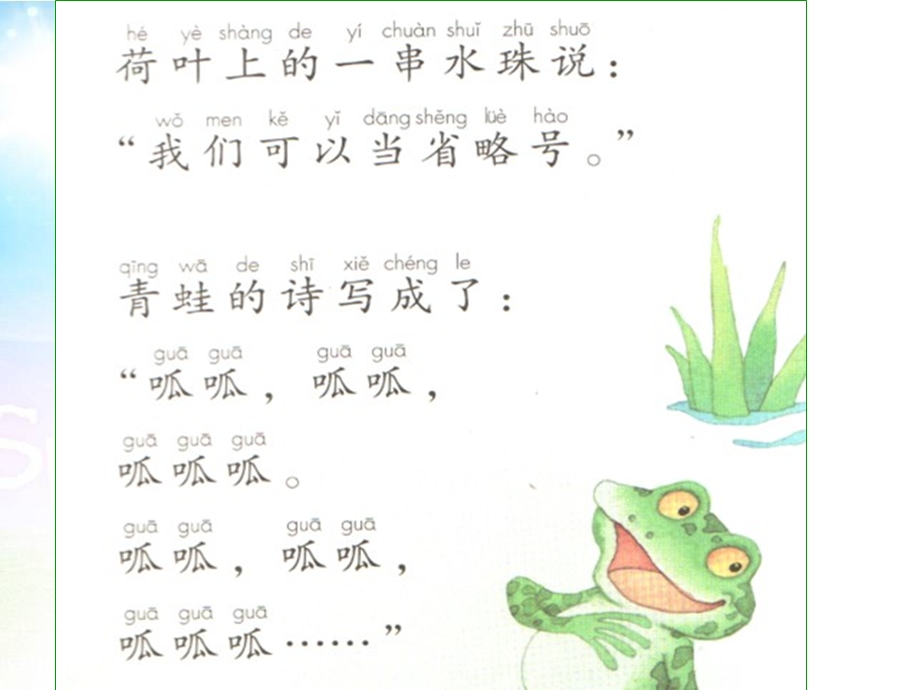 hé yè shàng de yí chuàn shuǐ zhū shuō
荷叶上的一串水珠说：
wǒ men kě yǐ dāng shěng lüè hào
“我们可以当省略号。”
qīng wā de shī xiě chéng le
青蛙的诗写成了：
guā guā guā guā
“呱呱，呱呱，
guā guā guā
呱呱呱。
guā guā guā guā
呱呱，呱呱，
guā guā guā
呱呱呱……”